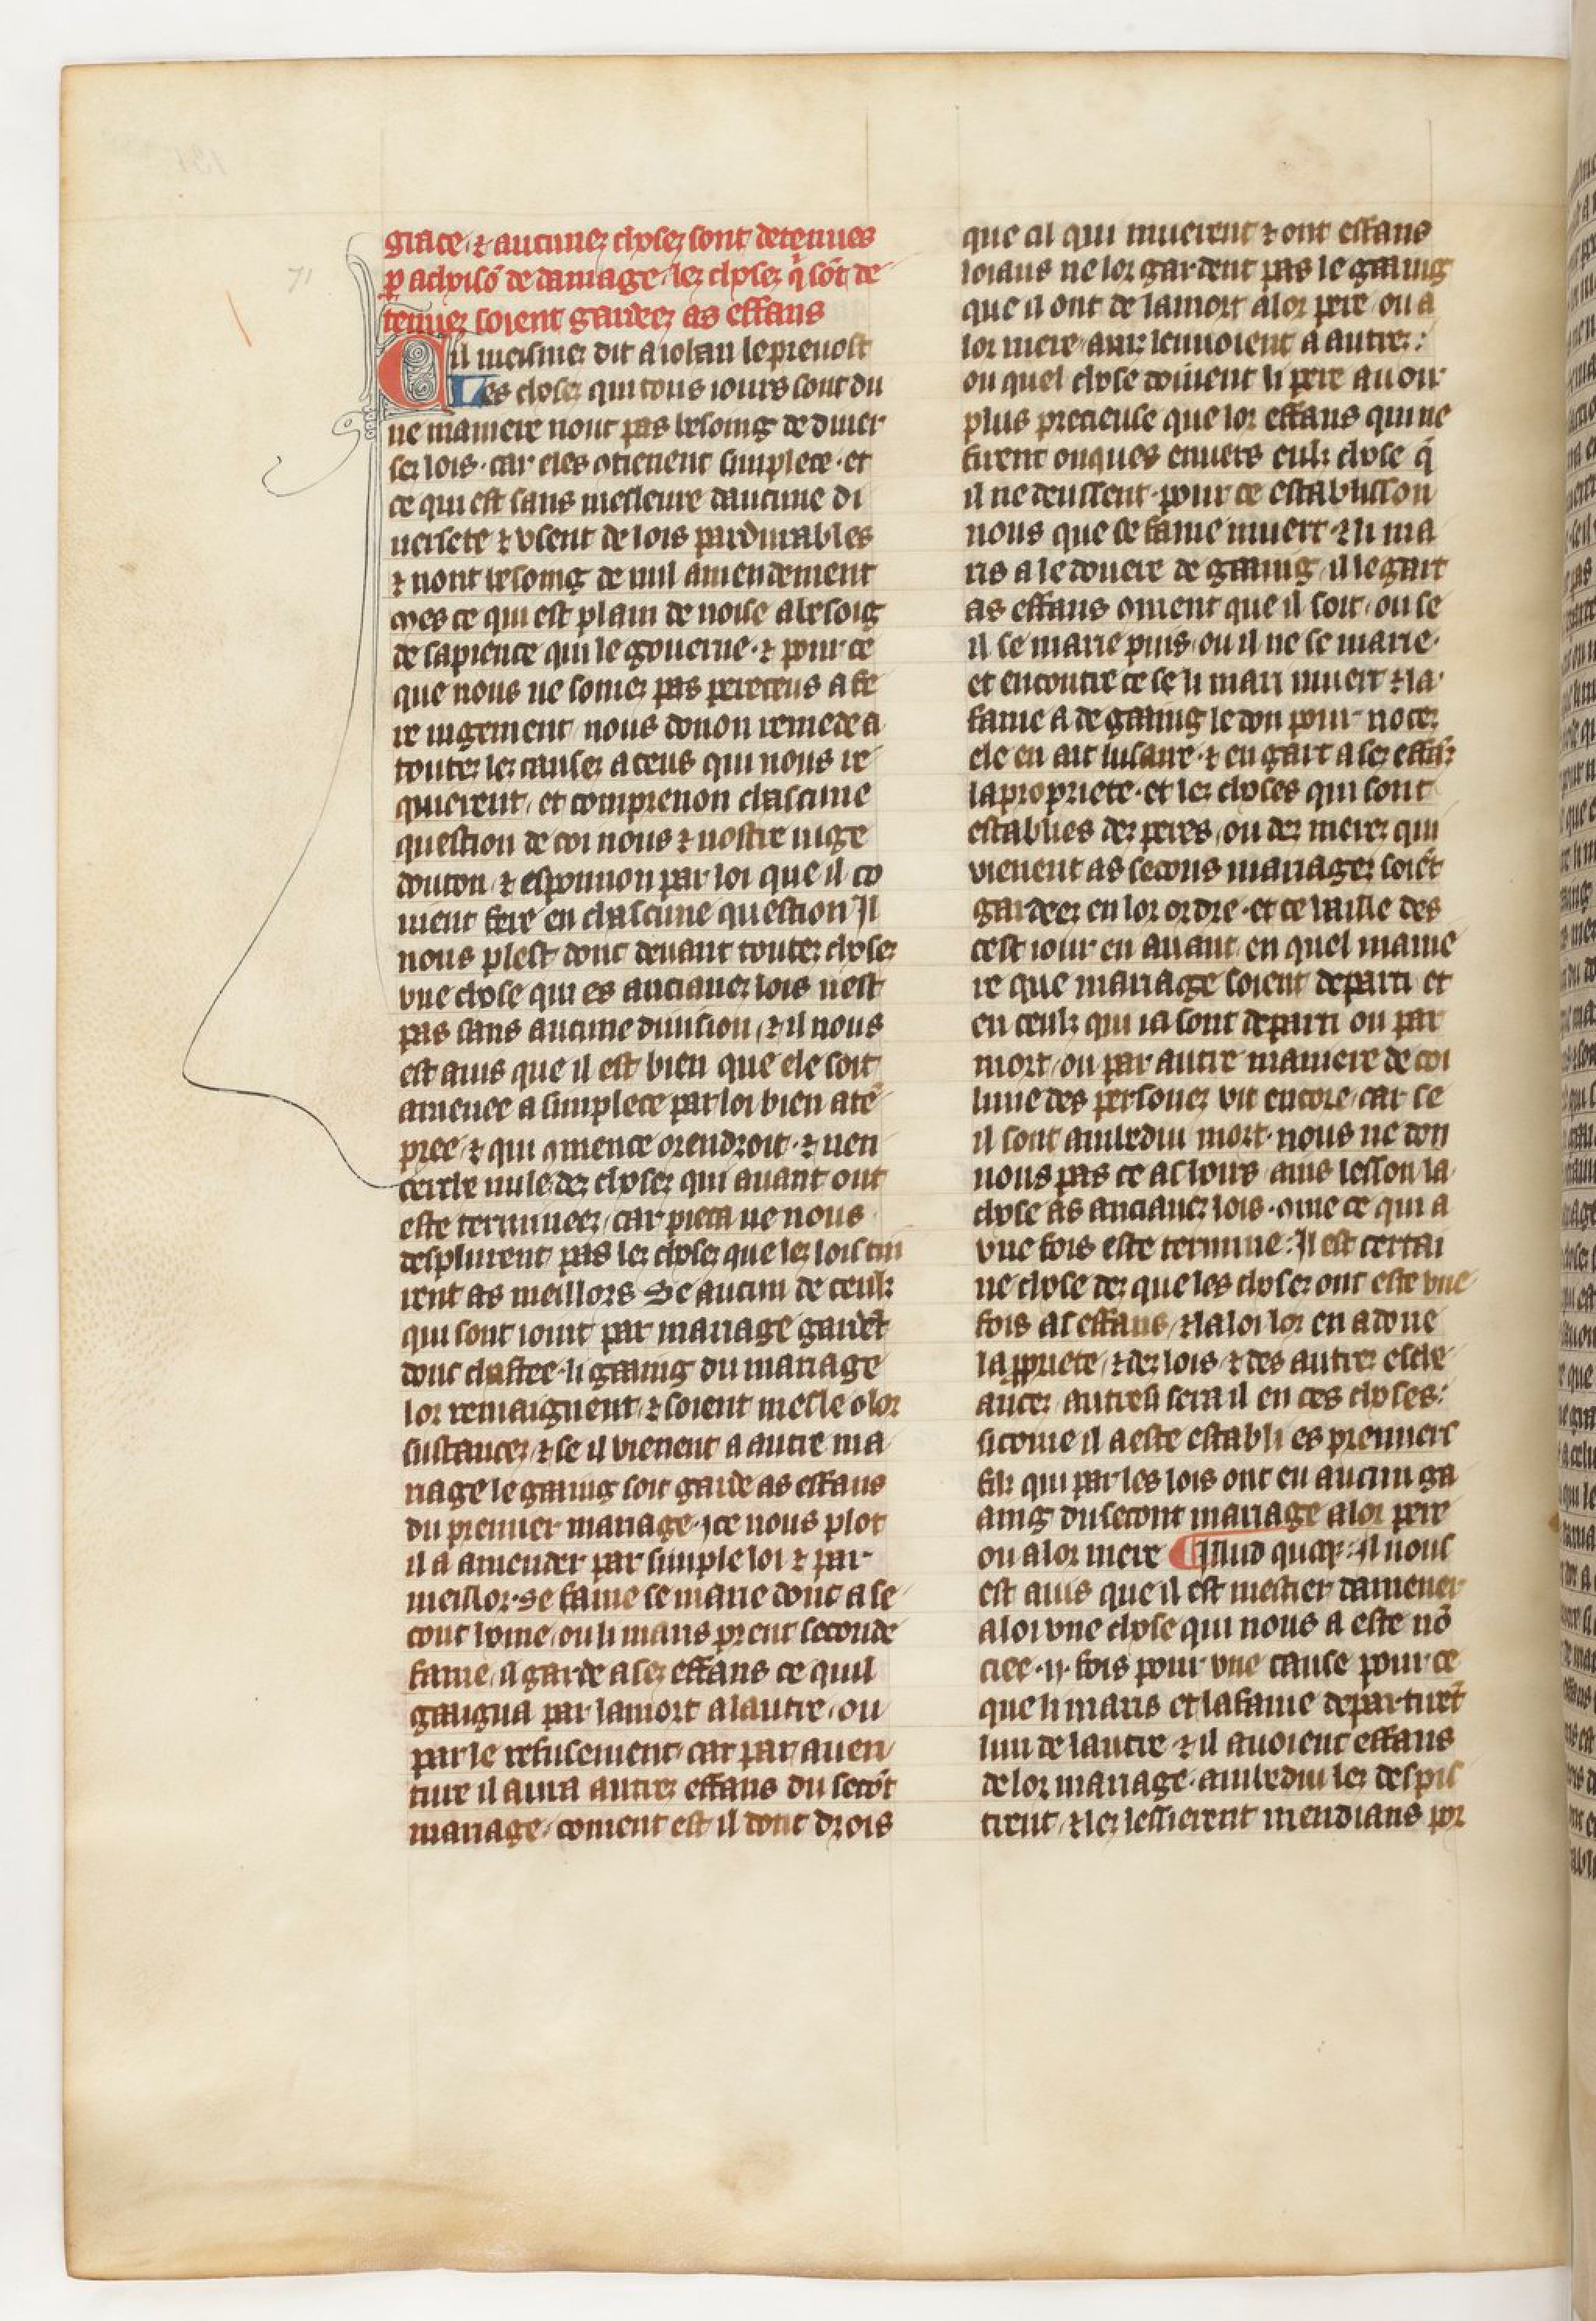 grace· ⁊ aucunez chosez sont detenues
p achoisō de damage· lez chosez q̄ sōt de
tenuez soient gardez as effans
Cil meismez dit a iohan le preuost
Les chosez qui tous iours sont du
ne maniere nont pas besoing de diuer
sez lois· car eles otienent simplece· et
ce qui est sans mesleure daucune di
uersete ⁊ vsent de lois pardurables
⁊ nont besoing de nul amendement
mes ce qui est plain de noise a besoig
de sapience qui le gouerne· ⁊ pour ce
que nous ne somez pas pereceus a fe
re iugement nous donon remede a
toutez lez causez a ceus qui nous re
quierent, et comprenon chascune
question de coi nous ⁊ nostre iuge
douton ⁊ esponnon par loi que il co
uient fere en chascune question Il
nous plest donc deuant toutez chosez
vne chose qui es ancianez lois nest
pas sans aucune diuision, ⁊ il nous
est auis que il est bien que ele soit
amenee a simplece par loi bien atē
pree· ⁊ qui 9mence orendroit· ⁊ uen
cerche nule dez chosez qui auant ont
este terminees, car pieca ne nous
desplurent pas lez chosez que lez lois tin
rent as meillors Se aucun de ceulz
qui sont ioint par mariage gardēt
donc chastee· li gaaing du mariage
lor remaignent, ⁊ soient mesle o lor
sustances, ⁊ se il vienent a autre ma
riage le gaaing soit garde as effans
du premier mariage· ⁊ ce nous plot
il a amender par simple loi ⁊ par
meillor· Se fame se marie donc a se
cont home, ou li maris prent seconde
fame, il garde a sez effans ce quil
gaigna par la mort a lautre, ou
par le refusement car par auen
ture il aura autrez effans du secōt
mariage, coment est il dont drois
que cil qui muerent ⁊ ont effans
loiaus ne lor gardent pas le gaaing
que il ont de la mort a lor pere, ou a
lor mere, ainz lenuoient a autrez:
ou quel chose doiuent li pere auoir
plus precieuse que lor effans qui ne
firent onques enuers eulz chose q̄
il ne deussent· pour ce establisson
nous que se fame muert ⁊ li ma
ris a le douere de gaaing, il le gart
as effans 9ment que il soit, ou se
il se marie puis, ou il ne se marie·
et encontre ce se li mari muert ⁊ la
fame a de gaaing le don pour nocez
ele en ait lusaire· ⁊ en gart a sez effās
la propriete· et lez choses qui sont
establies dez peres, ou dez merez qui
vienent as secons mariagez soiēt
gardeez en lor ordre· et ce vaille des
cest iour en auant en quel manie
re que mariage soient departi et
en ceulz qui ia sont departi ou par
mort, ou par autre maniere de coi
lune des personez vit encore, car se
il sont ambedui mort· nous ne don
nous pas ce as hoirs ains lesson la
chose as ancianez lois· 9me ce qui a
vne fois este termine: Il est certai
ne chose dez que les chosez ont este vne
fois as effans, ⁊ la loi lor en a done
la ꝓpriete, ⁊ dez lois ⁊ des autrez esche
ancez autresi sera il en ces choses:
si come il a este establi es premiers
filz qui par les lois ont eu aucun ga
aing du secont mariage a lor pere
ou a lor mere ¶ Illud quoqꝫ· Il nous
est auis que il est mestier damener
a loi vne chose qui nous a este nō
ciee· ij· fois pour vne cause pour ce
que li maris et la fame departirēt
lun de lautre ⁊ il auoient effans
de lor mariage· ambedui lez despis
trent, ⁊ lez lessierent mendians por